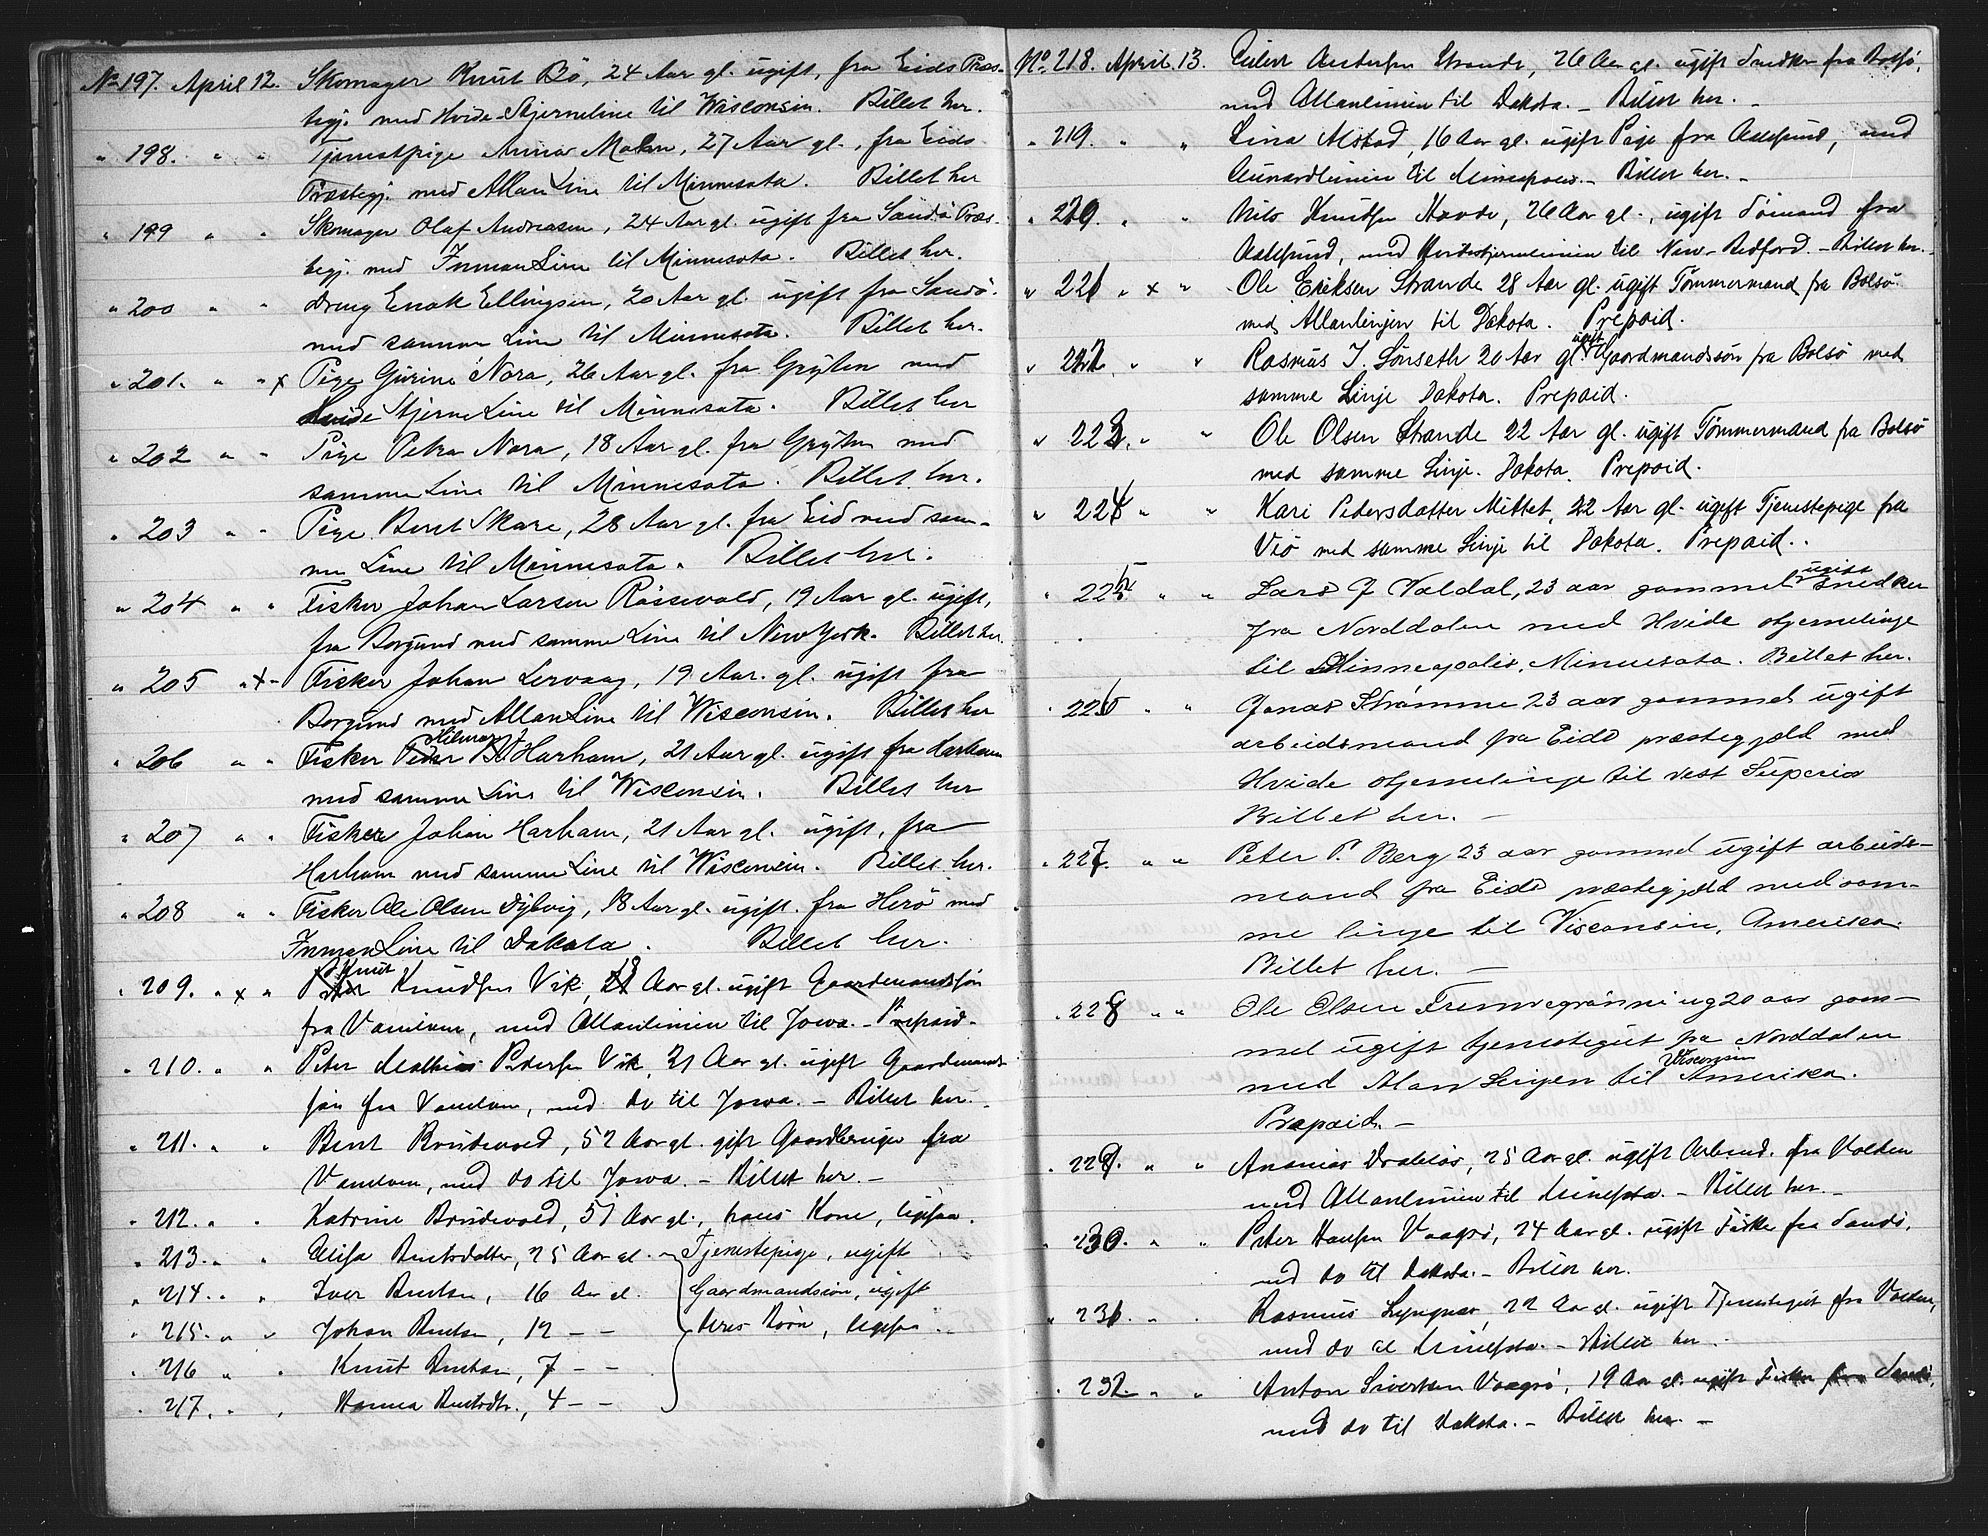 No 197. April 12. Skomager Knut Bö, 24 Aar gl. ugift, fra Eids Præs-
tegj. med Hvide-Stjerneline til Wisconsin. Billet her.
" 198. " " Tjenestpige Anna Malm, 27 Aar gl., fra Eids
Præstegj. med Allan Line til Minnesota. Billet her
" 199 " " Skomager Olaf Andreasen, 24 Aar gl. ugift fra Sandö Præs-
tegj. med Inman Line til Minnesota. Billet her.
" 200 " " Dreng Enok Ellingsen, 20 Aar gl. ugift fra Sandö
med samme Line til Minnesota. Billet her.
" 201. " " x Pige Gurine Nora, 26 Aar gl. fra Gryten med
Hvide Stjerne Line til Minnesota. Billet her
" 202 " " Pige Petra Nora, 18 Aar gl. fra Gryten med
samme Line til Minnesota. Billet her.
" 203 " " Pige Beret Skare, 28 Aar gl. fra Eid med sam-
me Line til Minnesota. Billet her.
" 204 " " Fisker Johan Larsen Rössevold, 19 Aar gl. ugift,
fra Borgund med samme Line til New York. Billet her.
" 205 " x - Fisker Johan Lervaag, 19 Aar. gl. ugift fra
Borgund med Allan Line til Wisconsin. Billet her
Hilmar J
" 206 " " Fisker Peder B. Harham, 21 Aar gl. ugift fra Harham
med samme Line til Wisconsin. Billet her
" 207 " " Fisker Johan Harham, 21 Aar gl. ugift, fra
Harham med samme Line til Wisconsin. Billet her.
" 208 " " Fisker Ole Olsen Dybvig, 18 Aar gl. ugift. fra Herö med
Inman Line til Dakota. Billet her.
Knut 18
" 209. " x " Peter Knudsen Vik, 21 Aar gl. ugift Gaardmandssön
fra Vanelven, med Allanlinien til Jowa. - Prepaid.
" 210. " " Peter Mathias Petersen Vik, 21 Aar gl. ugift Gaardmands
sön fra Vanelven, med do til Jowa. - Billet her.
" 211. " " Bent Brudevold, 52 Aar gl. gift Gaardbruger fra
Vanelven, med do til Jowa. - Billet her. -
" 212. " " Katrine Brudevold, 51 Aar gl., hans Kone, ligesaa.
" 213. " " Bentsdatter, 25 Aar gl. - Tjenestepige, ugift
" 214. " " Iver Bentsen, 16 Aar gl. Gaardmandssön, ugift
" 215. " " Johan Bentsen, 12 - - deres Börn, ligesaa. -
" 216 " " Knut Bentsen, 7 - -
" 217. " " Hanna Bentsdtr., 4 - -
No. 218. April. 13. Eilert Andersen Strande, 26 Aar gl. ugift Snedker fra Bolsö,
med Allanlinien til Dakota. - Billet her. -
" 219. " " Lina Alstad, 16 Aar gl. ugift Pige fra Aalesund, med
Cunardlinien til Minneapolis. - Billet her. -
" 220. " " Nils Knudsen Havde, 26 Aar gl., ugift Sömand fra
Aalesund, med Hvidestjernelinien til New-Bedford. - Billet her.
" 221 " x " Ole Eriksen Strande 28 Aar gl. ugift Tömmermand fra Bolsö
med Allanlinjen til Dakota. Prepaid.
ugift
" 222. " " Rasmus J. Lönseth 20 Aar gl. Gaardmandssön fra Bolsö med
samme Linje Dakota. Prepaid.
" 223. " " Ole Olsen Strande 22 Aar gl. ugift Tömmermand fra Bolsö
med samme Linje. Dakota. Prepaid.
" 224 " " Kari Pedersdatter Mittet, 22 Aar gl. ugift Tjenestepige fra
Veö med samme Linje til Dakota. Prepaid.
ugift
" 225. " " Lars J Valdal, 23 aar gammel Snedker
fra Norddalen med Hvide stjernelinge
til Minneapolis, Minnesota. Billet her.
" 226 " " Jonas Strömme 23 aar gammel ugift
arbeidsmand fra Eids præstegjeld med
Hvide stjernelinge til vest Superia
Billet her. -
" 227. " " Peter P. Berg 23 aar gammel ugift arbeids-
mand fra Eids præstegjeld med sam-
me linge til Visconsin, Amerika.
Billet her. -
" 228 " " Ole Olsen 20 aar gam-
mel ugift tjenestegut fra Norddalen
Visconsin
med Alan Lingen til Amerika.
Prepaid. -
" 229. " " Ananias Drabløs, 25 Aar gl. ugift Arbmd. fra Volden
med Allanlinien til Minesota. - Billet her. -
" 230. " " Peter Hansen Vaagsö, 24 Aar gl. ugift Fisker fra Sandö,
med do til Dakota. - Billet her.
" 231 " " Rasmus Lyngnes, 22 Aar gl. ugift Tjenestegut fra Volden,
med do til Minesota. - Billet her. -
" 232. " " Anton Sivertsen Vaagsö, 19 Aar gl. ugift Fisker fra Sandö,
med do til Dakota. - Billet her. -